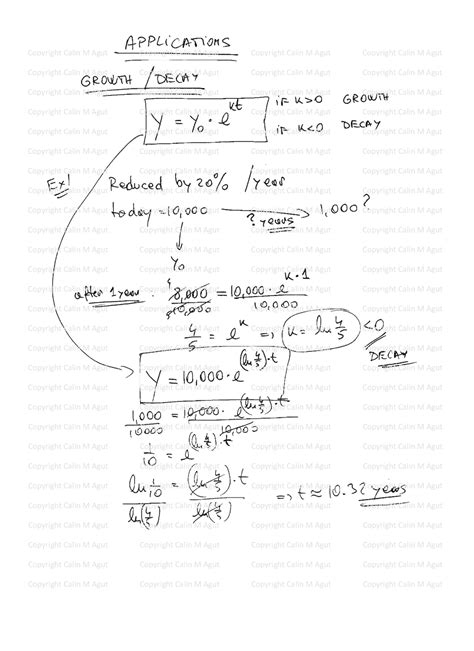 APPLICATIONS
GROWTH / DECAY
Y = Y₀ · e^(kt)
if K>0 GROWTH
if K<0 DECAY
Ex!
Reduced by 20% / year
today = 10,000 → ? years 1,000?
↓
Y₀
after 1 year: 8,000/10,000 = 10,000 · e^(K·1)/10,000
4
4/5 = e^K => K = ln 4/5 <0
DECAY
Y = 10,000 · e^((ln 4/5)·t)
1,000/10000 = 10,000 · e^((ln 4/5)·t)/10,000
1/10 = e^((ln 4/5)·t)
ln 1/10 / ln(4/5) = (ln 4/5)·t / ln(4/5) => t ≈ 10.32 years
Copyright Calin M Agut